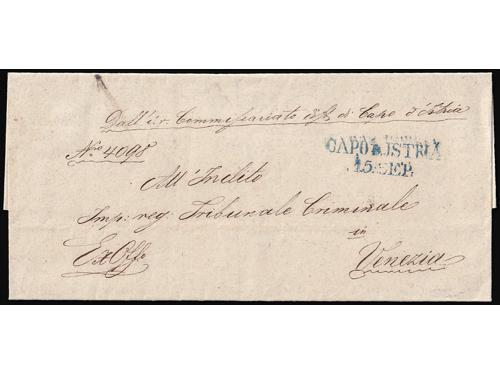 Dall'i. r. Commissariato di Capo d'Istria
Nro 4098
CAPO D'ISTRIA
15. SEP.
All' Inclito
Imp: reg: Tribunale Criminale
in
Ex Offo
Venezia